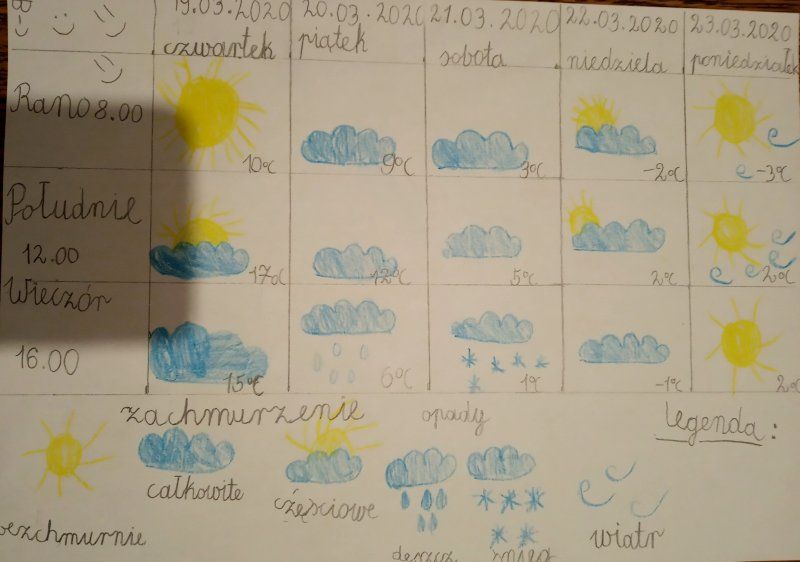 19.03.2020 20.03.2020 21.03.2020 22.03.2020 23.03.2020
czwartek piątek sobota niedziela poniedziałek
Rano 8.00
10°C 9°C 3°C -2°C -3°C
Południe
12.00
17°C 12°C 5°C 2°C 2°C
Wieczór
16.00
15°C 6°C 1°C -1°C 2°C
zachmurzenie opady legenda:
całkowite częściowe
bezchmurnie deszcz śnieg wiatr